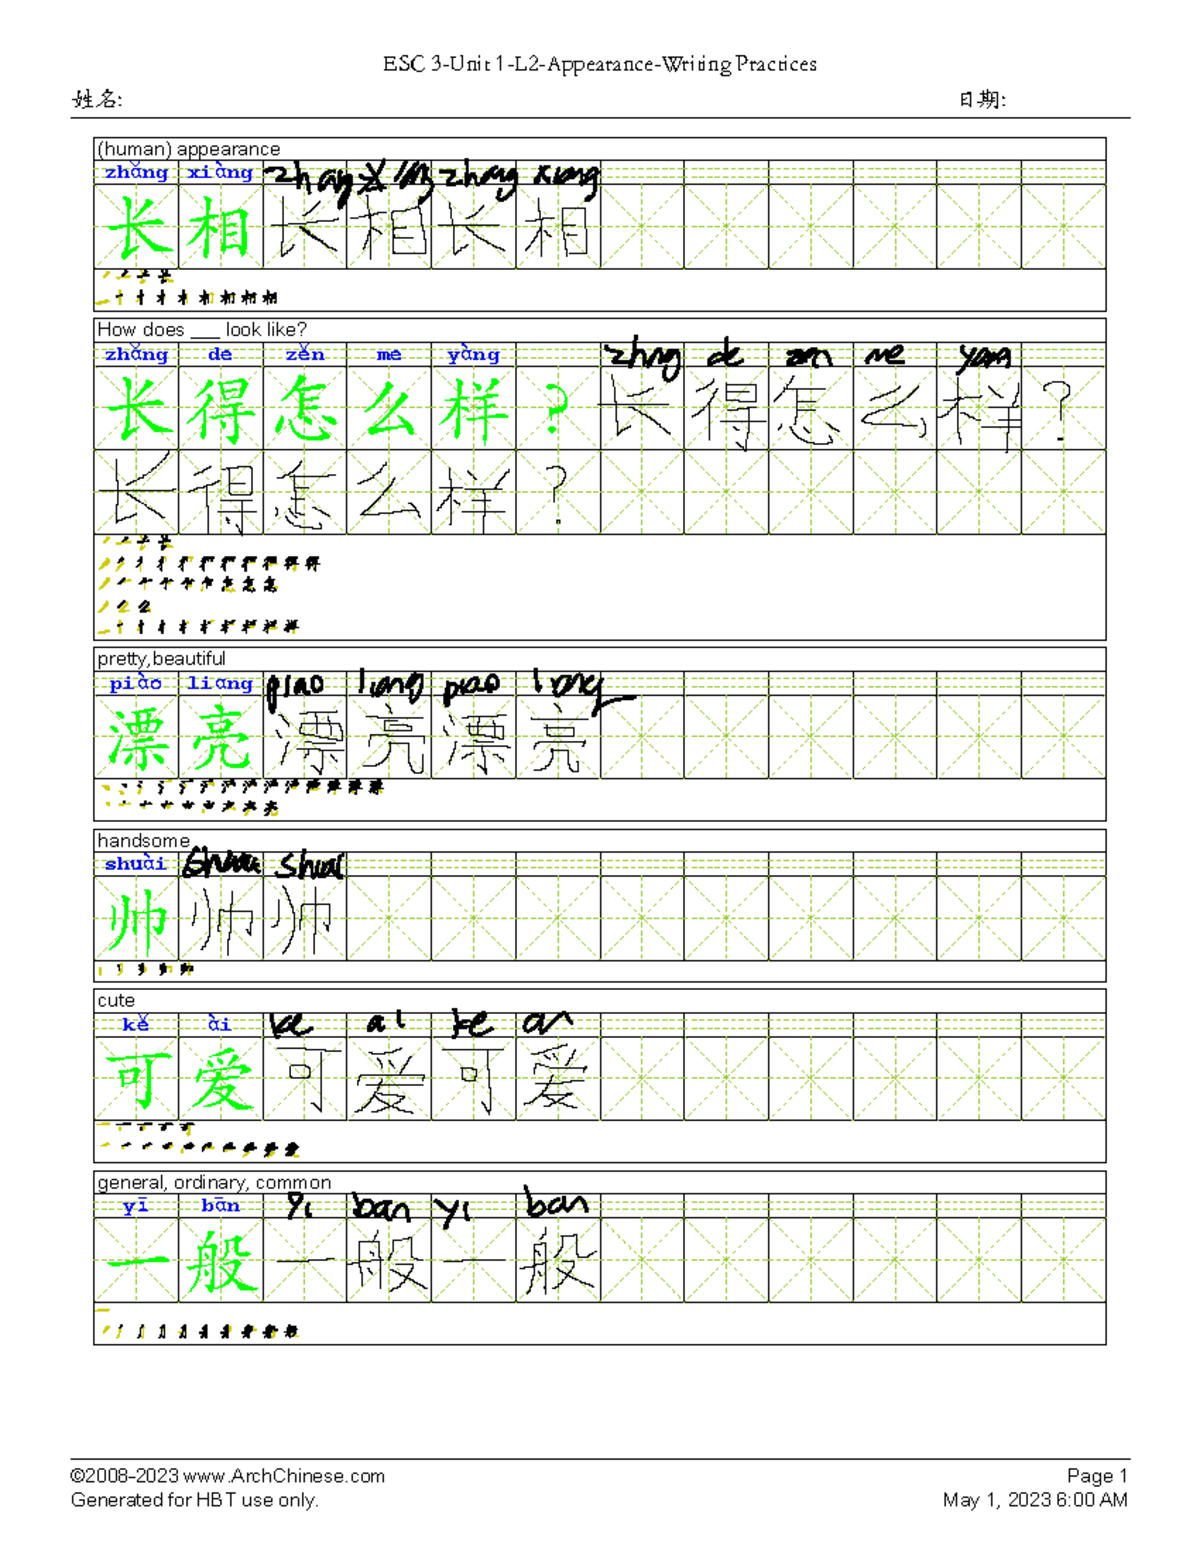 ESC 3-Unit 1-L2-Appearance-Writing Practices
姓名: 日期:
(human) appearance
zhǎng xiàng zhang xiang zhang xiang
长 相 长 相 长 相
How does ___ look like?
zhǎng de zěn me yàng zhng de zen me yang
长 得 怎 么 样 ? 长 得 怎 么 样 ?
长 得 怎 么 样 ?
pretty,beautiful
piào liang piao liang piao liang
漂 亮 漂 亮 漂 亮
handsome
shuài shuai shuai
帅 帅 帅
cute
kě ài ke ai ke ai
可 爱 可 爱 可 爱
general, ordinary, common
yī bān Yi ban yi ban
一 般 一 般 一 般
©2008-2023 www.ArchChinese.com Page 1
Generated for HBT use only. May 1, 2023 6:00 AM